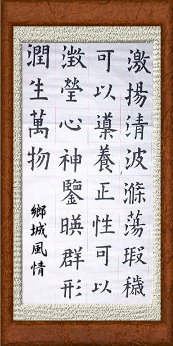 激揚清波滌蕩瑕穢
可以導養正性可以
澂瑩心神鑒暎群形
潤生萬物
鄉城風情